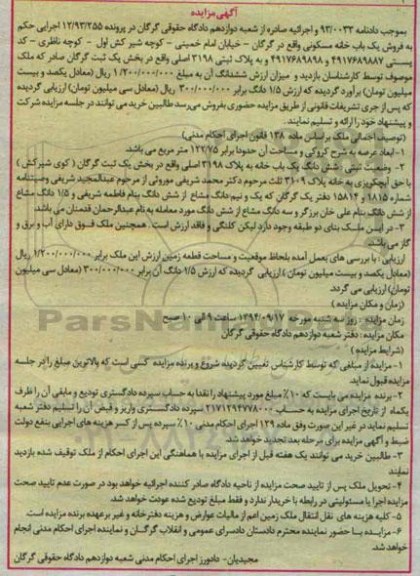 آگهی مزایده
بموجب دادنامه ۹۳/۰۰۳۳ و اجرائیه صادره از شعبه دوازدهم دادگاه حقوقی گرگان در پرونده ۱۲/۹۳/۲۵۵ اجرایی حکم
به فروش یک باب خانه مسکونی واقع در گرگان - خیابان امام خمینی - کوچه شیر کش اول - کوچه ناظری - کد
پستی ۴۹۱۷۶۸۹۸۸۷ و ۴۹۱۷۶۸۹۸۹۸ و به پلاک ثبتی ۳۱۹۸ اصلی واقع در بخش یک ثبت گرگان صادر که ملک
موصوف توسط کارشناسان بازدید و میزان ارزش ششدانگ آن به مبلغ ۱/۲۰۰/۰۰۰/۰۰۰ ریال (معادل یکصد و بیست
میلیون تومان) برآورد گردیده که ارزش ۱/۵ دانگ برابر ۳۰۰/۰۰۰/۰۰۰ ریال (معادل سی میلیون تومان) ارزیابی گردیده
که پس از جری تشریفات قانونی از طریق مزایده حضوری بفروش می‌رسد طالبین خرید می توانند در جلسه مزایده شرکت
و پیشنهاد خود را ارائه و تسلیم نمایند.
(توصیف اجمالی ملک بر اساس ماده ۱۳۸ قانون اجرای احکام مدنی)
۱- ابعاد عرصه به شرح کروکی و مساحت آن حدودا برابر ۱۲۲/۷۵ متر مربع می باشد.
۲- وضعیت ثبتی: شش دانگ یک باب خانه به پلاک ۳۱۹۸ اصلی واقع در بخش یک ثبت گرگان (کوی شیرکش)
با حق آبچکریزی به خانه پلاک ۳۱۰۹ ثلث مرحوم دکتر محمد شریفی موروثی از مرحوم عبدالمجید شریفی وصیتنامه
شماره ۱۸۱۵ و ۱۵۸۱۴ دفتر یک گرگان که یک و نیم دانگ مشاع از شش دانگ بنام فاطمه شریفی و ۱/۵ دانگ مشاع
از شش دانگ بنام علی خان برزگر و سه دانگ مشاع از شش دانگ مورد معامله به نام عبدالرحمان قندمنان می باشد.
۳- در این ملک بنای دو طبقه وجود دارد لیکن کلنگی و فاقد ارزش است. همچنین ملک فوق دارای آب و برق و
گاز می باشد.
ارزیابی: با بررسی های بعمل آمده بلحاظ موقعیت و مساحت قطعه زمین ارزش این ملک برابر ۱/۲۰۰/۰۰۰/۰۰۰ ریال
(معادل یکصد و بیست میلیون تومان) ارزیابی گردیده که ارزش ۱/۵ دانگ آن برابر ۳۰۰/۰۰۰/۰۰۰ (معادل سی میلیون
تومان) ارزیابی می گردد.
(زمان و مکان مزایده)
زمان مزایده: روز سه شنبه مورخه ۱۳۹۴/۰۹/۱۷ ساعت ۹ الی ۱۰ صبح
مکان مزایده: دفتر شعبه دوازدهم دادگاه حقوقی گرگان
(شرایط مزایده)
۱- مزایده از مبلغی که توسط کارشناس تعیین گردیده شروع و برنده مزایده کسی است که بالاترین مبلغ را در جلسه
مزایده قبول نماید.
۲- برنده مزایده می بایست که ۱۰٪ مبلغ مورد پیشنهاد را نقدا به حساب سپرده دادگستری تودیع و مابقی آن را ظرف
یکماه از تاریخ اجرای مزایده به حساب ۲۱۷۱۲۹۲۷۷۸۰۰۰ سپرده دادگستری واریز و فیش آن را تسلیم دفتر شعبه
نماید در غیر این صورت وفق ماده ۱۲۹ اجرای احکام مدنی ۱۰٪ سپرده پس از کسر هزینه های اجرایی بنفع دولت
ضبط و آگهی مزایده برای مرحله بعد تجدید خواهد شد.
۳- طالبین خرید می توانند یک هفته قبل از اجرای مزایده با هماهنگی این اجرای احکام از ملک توقیف شده بازدید
نمایند
۴- تحویل ملک پس از تایید صحت مزایده از ناحیه دادگاه صادر کننده اجرائیه خواهد بود در صورت عدم تایید صحت
مزایده اجرا با مسئولیتی در رابطه با خریدار ندارد و فقط مبلغ تودیع شده عودت خواهد شد.
۵- کلیه هزینه های نقل انتقال ملک زمین اعم از مالیات عوارض و هزینه دفترخانه و غیر برعهده برنده مزایده است
۶- مزایده با حضور نماینده محترم دادستان دادسرای عمومی و انقلاب گرگان و نماینده اجرای احکام مدنی انجام
خواهد شد.
مجیدیان - دادورز اجرای احکام مدنی شعبه دوازدهم دادگاه حقوقی گرگان